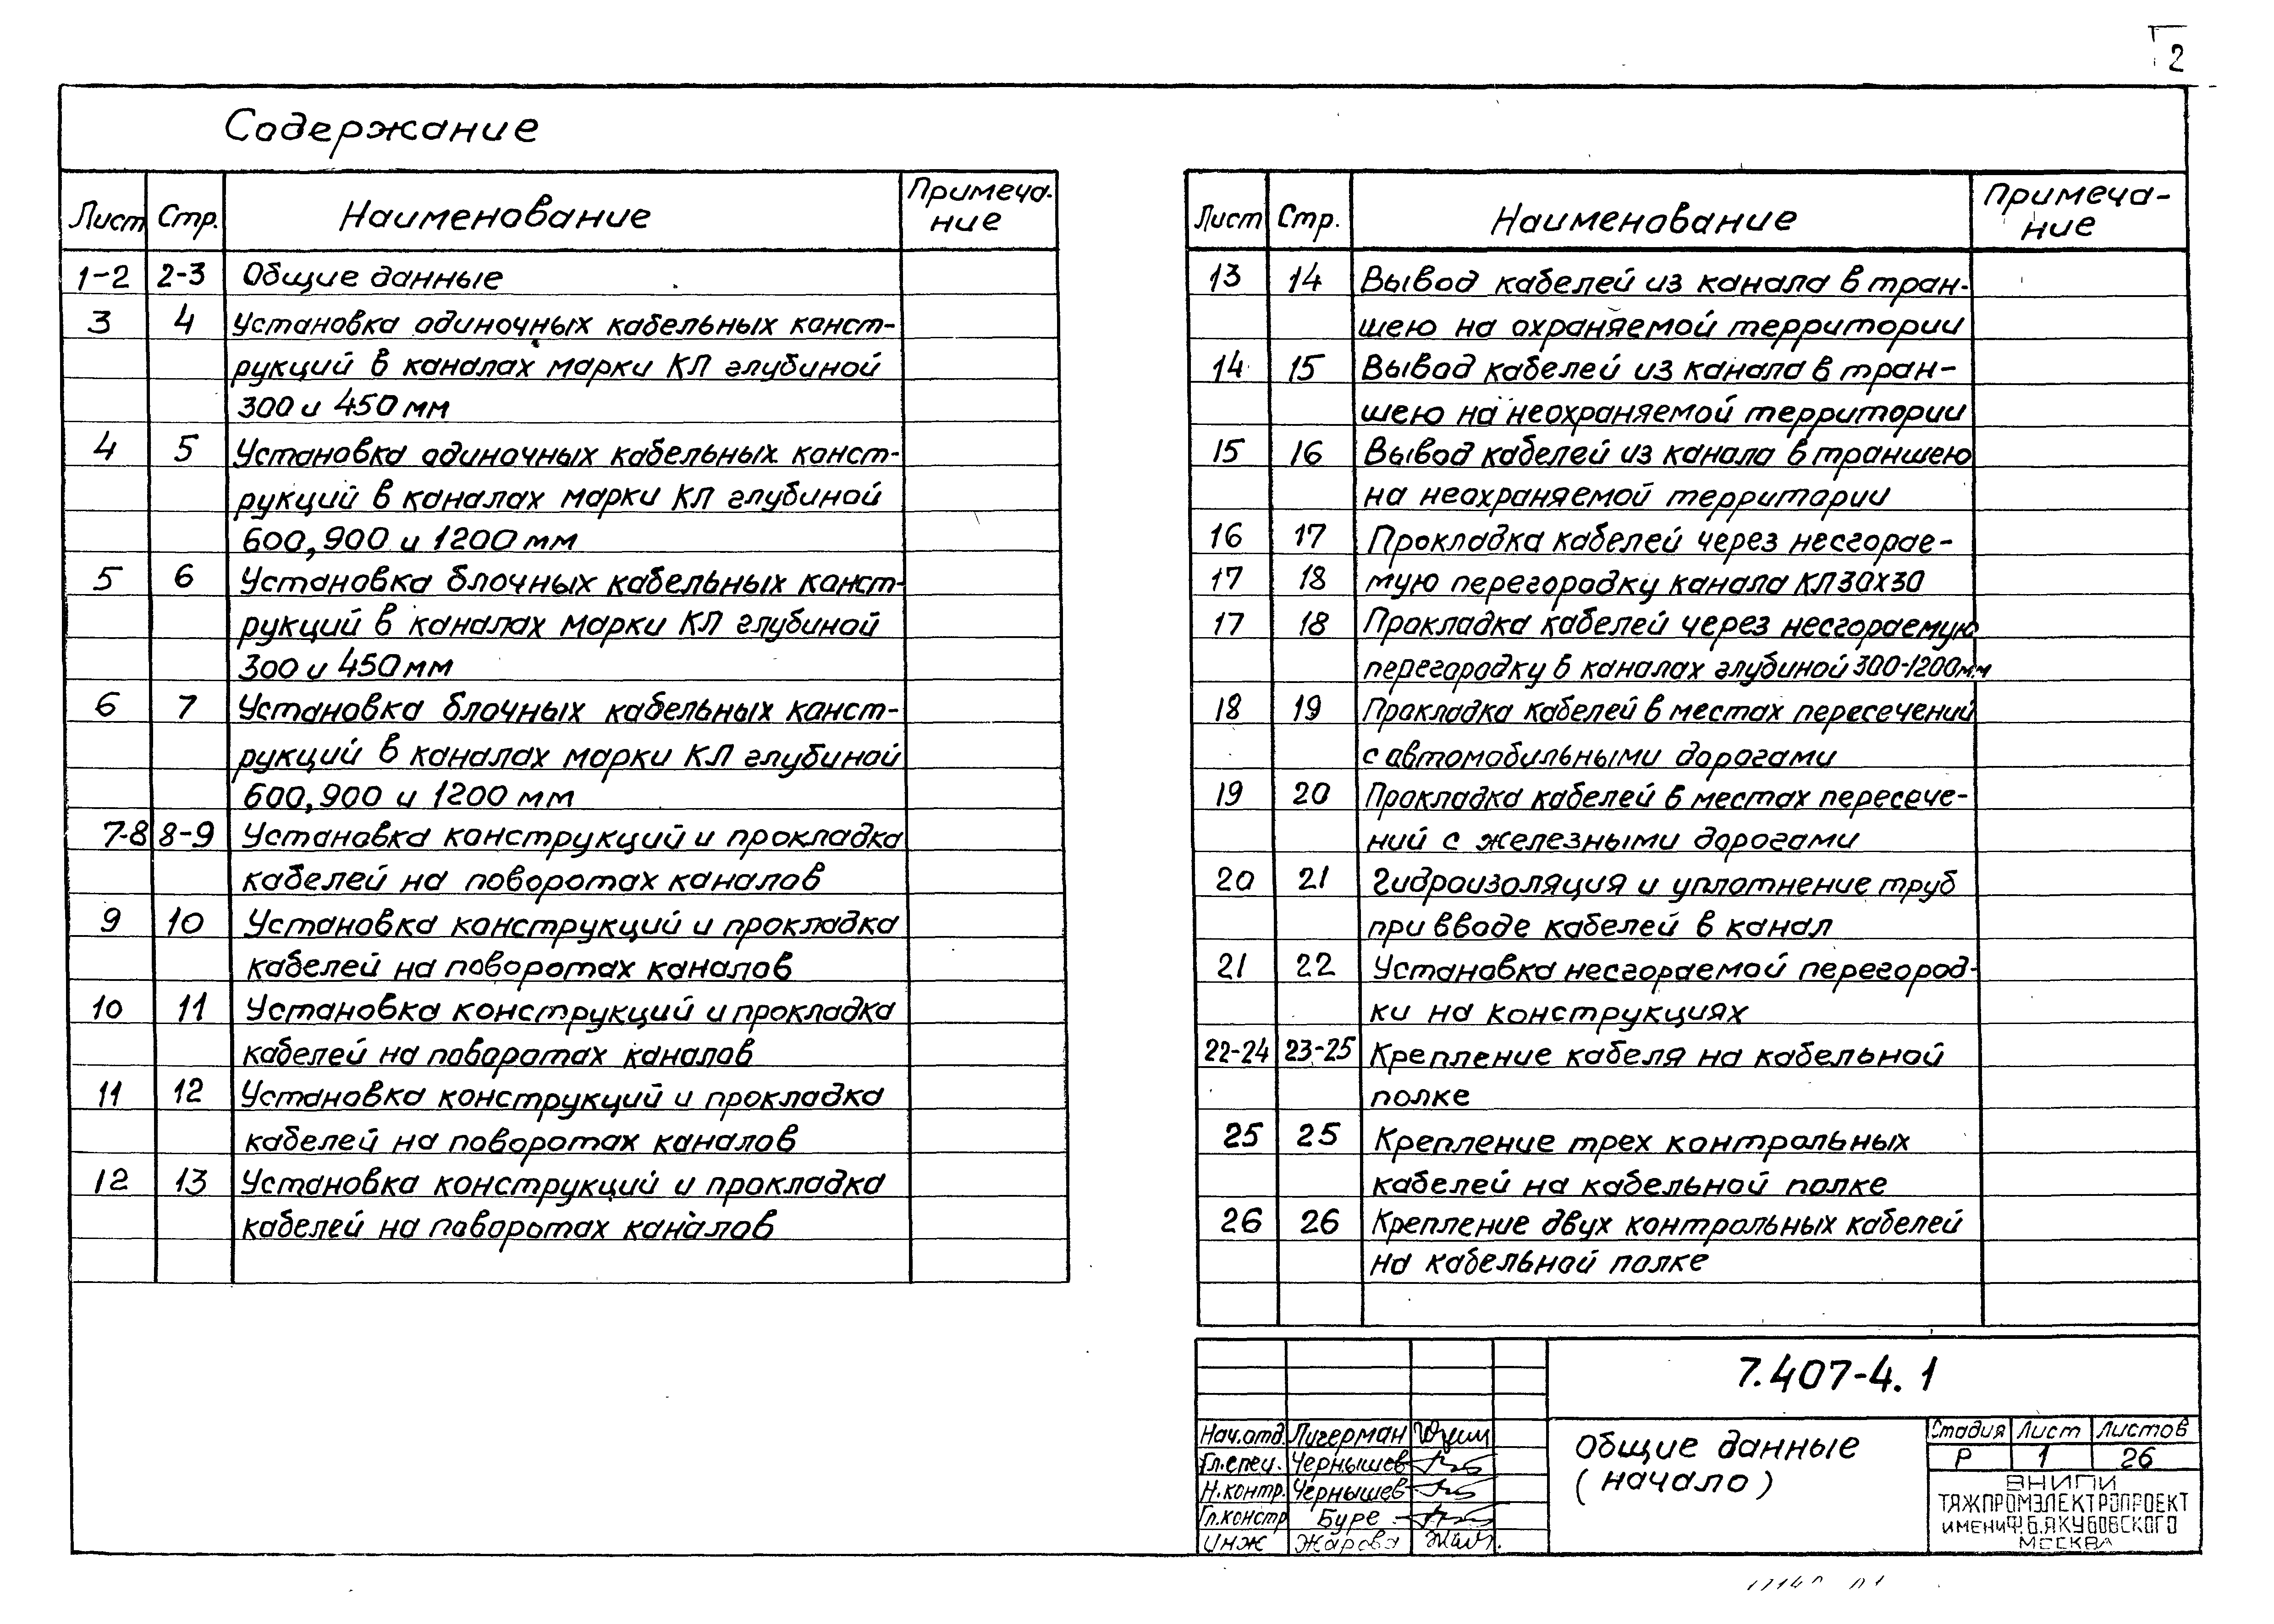 2
Содержание
Лист Стр. Наименование Примеча-
ние
1-2 2-3 Общие данные
3 4 Установка одиночных кабельных конст-
рукций в каналах марки КЛ глубиной
300 и 450 мм
4 5 Установка одиночных кабельных конст-
рукций в каналах марки КЛ глубиной
600, 900 и 1200 мм
5 6 Установка блочных кабельных конст-
рукций в каналах марки КЛ глубиной
300 и 450 мм
6 7 Установка блочных кабельных конст-
рукций в каналах марки КЛ глубиной
600, 900 и 1200 мм
7-8 8-9 Установка конструкций и прокладка
кабелей на поворотах каналов
9 10 Установка конструкций и прокладка
кабелей на поворотах каналов
10 11 Установка конструкций и прокладка
кабелей на поворотах каналов
11 12 Установка конструкций и прокладка
кабелей на поворотах каналов
12 13 Установка конструкций и прокладка
кабелей на поворотах каналов
Лист Стр. Наименование Примеча-
ние
13 14 Вывод кабелей из канала в тран-
шею на охраняемой территории
14 15 Вывод кабелей из канала в тран-
шею на неохраняемой территории
15 16 Вывод кабелей из канала в траншею
на неохраняемой территории
16 17 Прокладка кабелей через несгорае-
17 18 мую перегородку канала КЛ30х30
17 18 Прокладка кабелей через несгораемую
перегородку в каналах глубиной 300-1200мм
18 19 Прокладка кабелей в местах пересечений
с автомобильными дорогами
19 20 Прокладка кабелей в местах пересече-
ний с железными дорогами
20 21 Гидроизоляция и уплотнение труб
при вводе кабелей в канал
21 22 Установка несгораемой перегород-
ки на конструкциях
22-24 23-25 Крепление кабеля на кабельной
полке
25 25 Крепление трех контрольных
кабелей на кабельной полке
26 26 Крепление двух контрольных кабелей
на кабельной полке
7.407-4.1
Нач.отд. Лигерман
Гл.спец. Чернышев
Н.контр. Чернышев
Гл.констр Буре
Инж Жарова
Общие данные
(начало)
Стадия Лист Листов
Р 1 26
ВНИПИ
ТЯЖПРОМЭЛЕКТРОПРОЕКТ
ИМЕНИ Ф.Б.ЯКУБОВСКОГО
МОСКВА